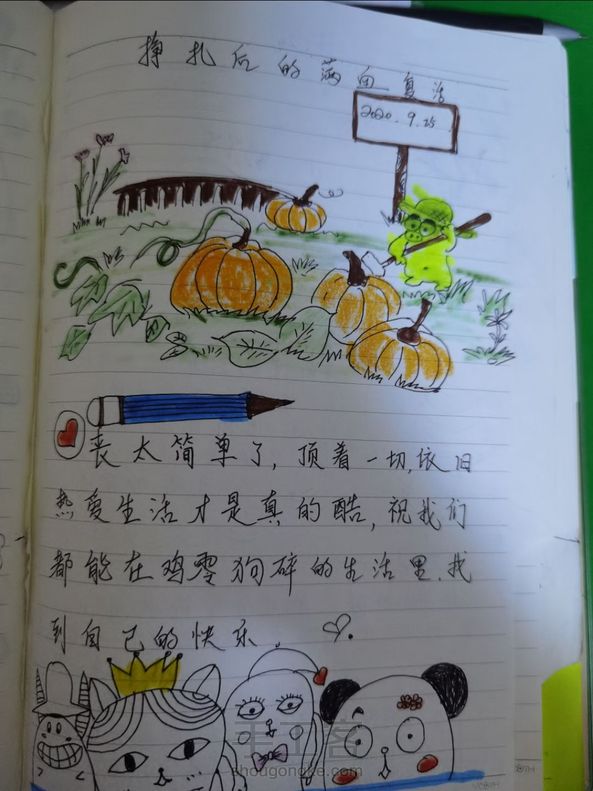 挣扎后的满血复活
2020.9.25
丧太简单了,顶着一切,依旧
热爱生活才是真的酷,祝我们
都能在鸡零狗碎的生活里,找
到自己的快乐.
手工客
shougongke.com